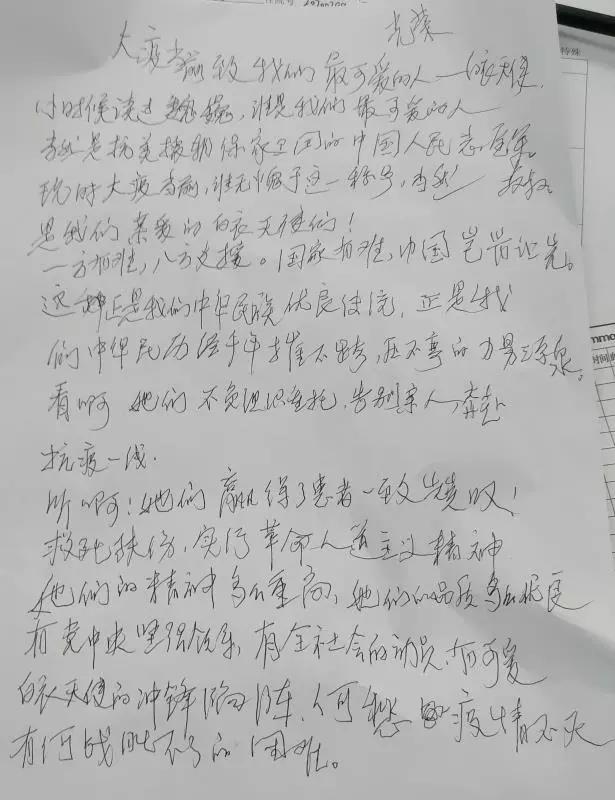 大疫当前致我们最可爱的人——白衣天使.
小时候读过魏巍, 谁是我们最可爱的人
当然是抗美援朝保家卫国的中国人民志愿军.
现时大疫当前, 谁无愧于这一称号, 当然
是我们亲爱的白衣天使们!
一方有难, 八方支援。国家有难, 中国岂肯让先。
这种正是我们中华民族优良传统, 正是我
们中华民历经千年摧不垮, 压不弯的力量源泉。
看啊 她们不负组织重托, 告别家人, 奔赴
抗疫一线.
听啊! 她们赢得了患者一致赞叹!
救死扶伤, 实行革命人道主义精神
她们的精神多么重高, 她们的品质多么优良
有党中央坚强领导, 有全社会的动员. 有可爱
白衣天使的冲锋陷阵, 何愁疫情不灭
有何战胜不了的困难。
时间